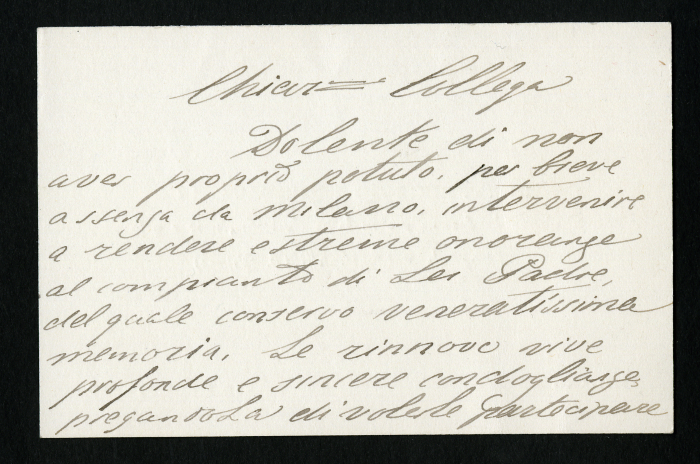 Chiar= Collega
Dolente di non
aver proprio potuto, per breve
assenza da Milano, intervenire
a rendere estreme onoranze
al compianto di Lei Padre,
del quale conservo veneratissima
memoria, Le rinnovo vive
profonde e sincere condoglianze,
pregandoLa di volerle partecipare